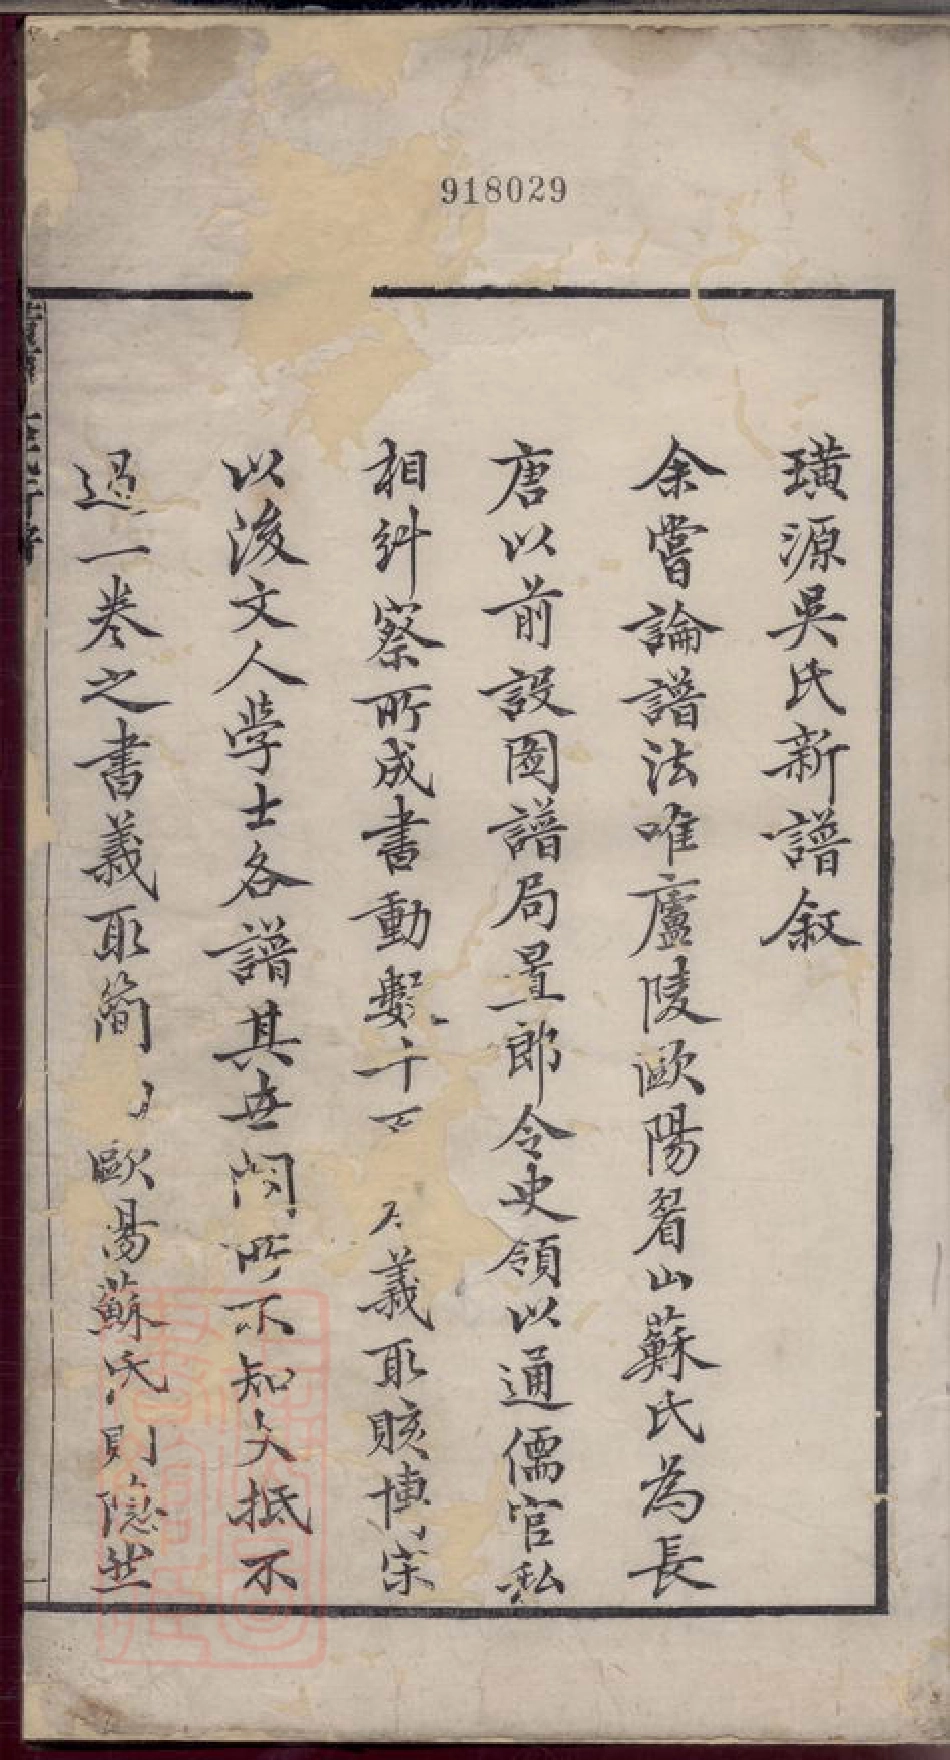 918029
璜源吳氏新譜叙
余嘗論譜法唯廬陵歐陽眉山蘇氏為長
唐以前設圖譜局置郎令史領以通儒官私
相糾察所成書動數千百義取賅博宋
以後文人學士各譜其世間所不知大抵不
過一卷之書義取簡歐陽蘇氏則隱然